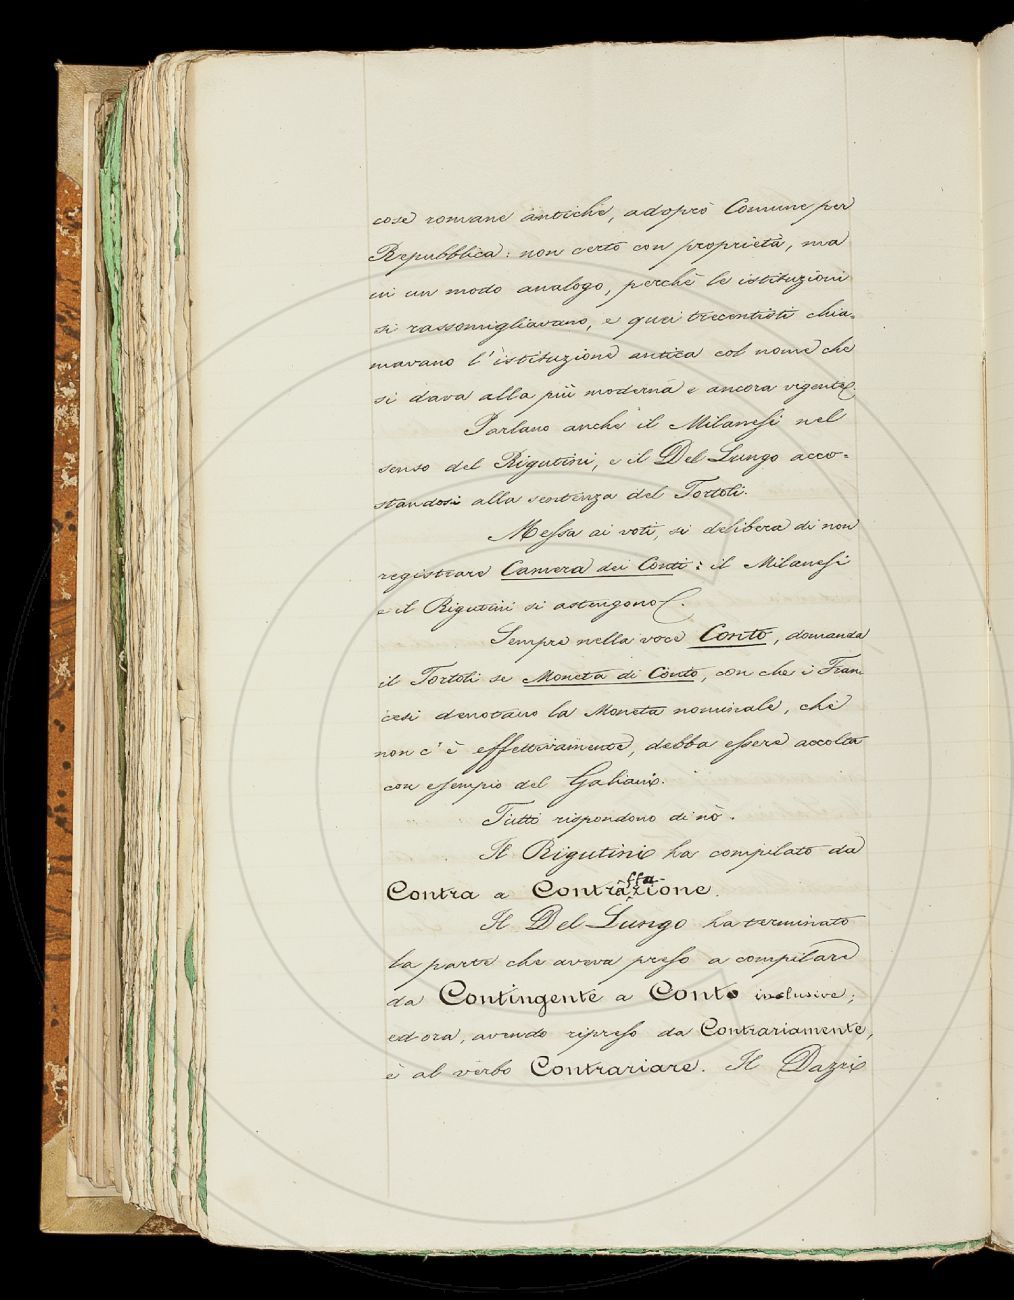 cose romane antiche, adoprò Comune per
Repubblica: non certo con proprietà, ma
in un modo analogo, perchè le istituzioni
si rassomigliavano, e quei trecentisti chia-
mavano l'istituzione antica col nome che
si dava alla più moderna e ancora vigente.
Parlano anche il Milanesi nel
senso del Rigutini, e il Del Lungo acco-
standosi alla sentenza del Tortoli.
Messa ai voti, si delibera di non
registrare Camera dei Conti: il Milanesi
e il Rigutini si astengono.
Sempre nella voce Conto, domanda
il Tortoli se Moneta di Conto, con che i Fran-
cesi denotano la Moneta nominale, che
non c'è effettivamente, debba essere accolta
con esempio del Galiani.
Tutti rispondono di nò.
Il Rigutini ha compilato da
Contra a Contraffazione.
Il Del Lungo ha terminato
la parte che aveva preso a compilare
da Contingente a Conto inclusive;
ed ora, avendo ripreso da Contrariamente,
è al verbo Contrariare. Il Dazzi